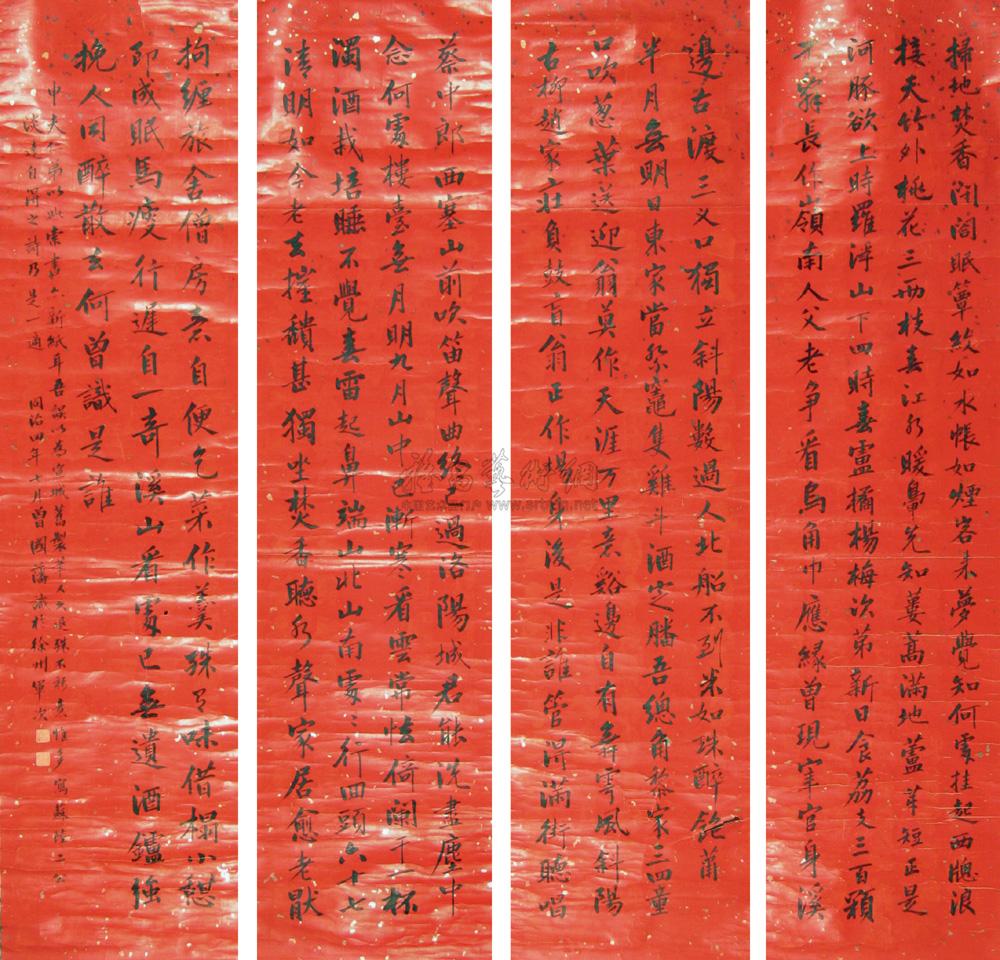 掃地焚香閉閤眠簟紋如水帳如煙客来夢覺知何處挂起西牕浪
接天竹外桃花三兩枝春江水暖鳧先知蔞蒿滿地蘆芽短正是
河豚欲上時羅浮山下四時春盧橘楊梅次第新日食荔支三百顆
不辭長作嶺南人父老爭看烏角巾應緣曾現宰官身溪
邊古渡三叉口獨立斜陽數過人北船不到米如珠醉飽蕭
半月無明日東家當祭竈隻雞斗酒定膰吾總角黎家三四童
口吹葱葉送迎翁莫作天涯万里意谿邊自有舞雩風斜陽
古柳趙家庄負鼓盲翁正作場身後是非誰管得滿街聽唱
蔡中郎西塞山前吹笛聲曲終已過洛陽城君能洗盡塵中
念何處樓臺無月明九月山中已漸寒看雲常怯倚闌干一杯
濁酒栽培睡不覺春雷起鼻端山北山南處〻行回頭六十七
清明如今老去摧頹甚獨坐焚香聽水聲家居愈老厭
拘纏旅舍僧房意自便乞菜作羹殊有味借榻小憩
即成眠馬瘦行遲自一奇溪山看處已無遺酒鑪強
挽人同醉散去何曾識是誰
中夫仁弟以此索書新紙耳吾誤以為宣城舊製筆人大退殊不稱意惟多寫蘇陸二公
淡遠自得之詩乃是一適 同治四年七月曾國藩識於徐州軍次